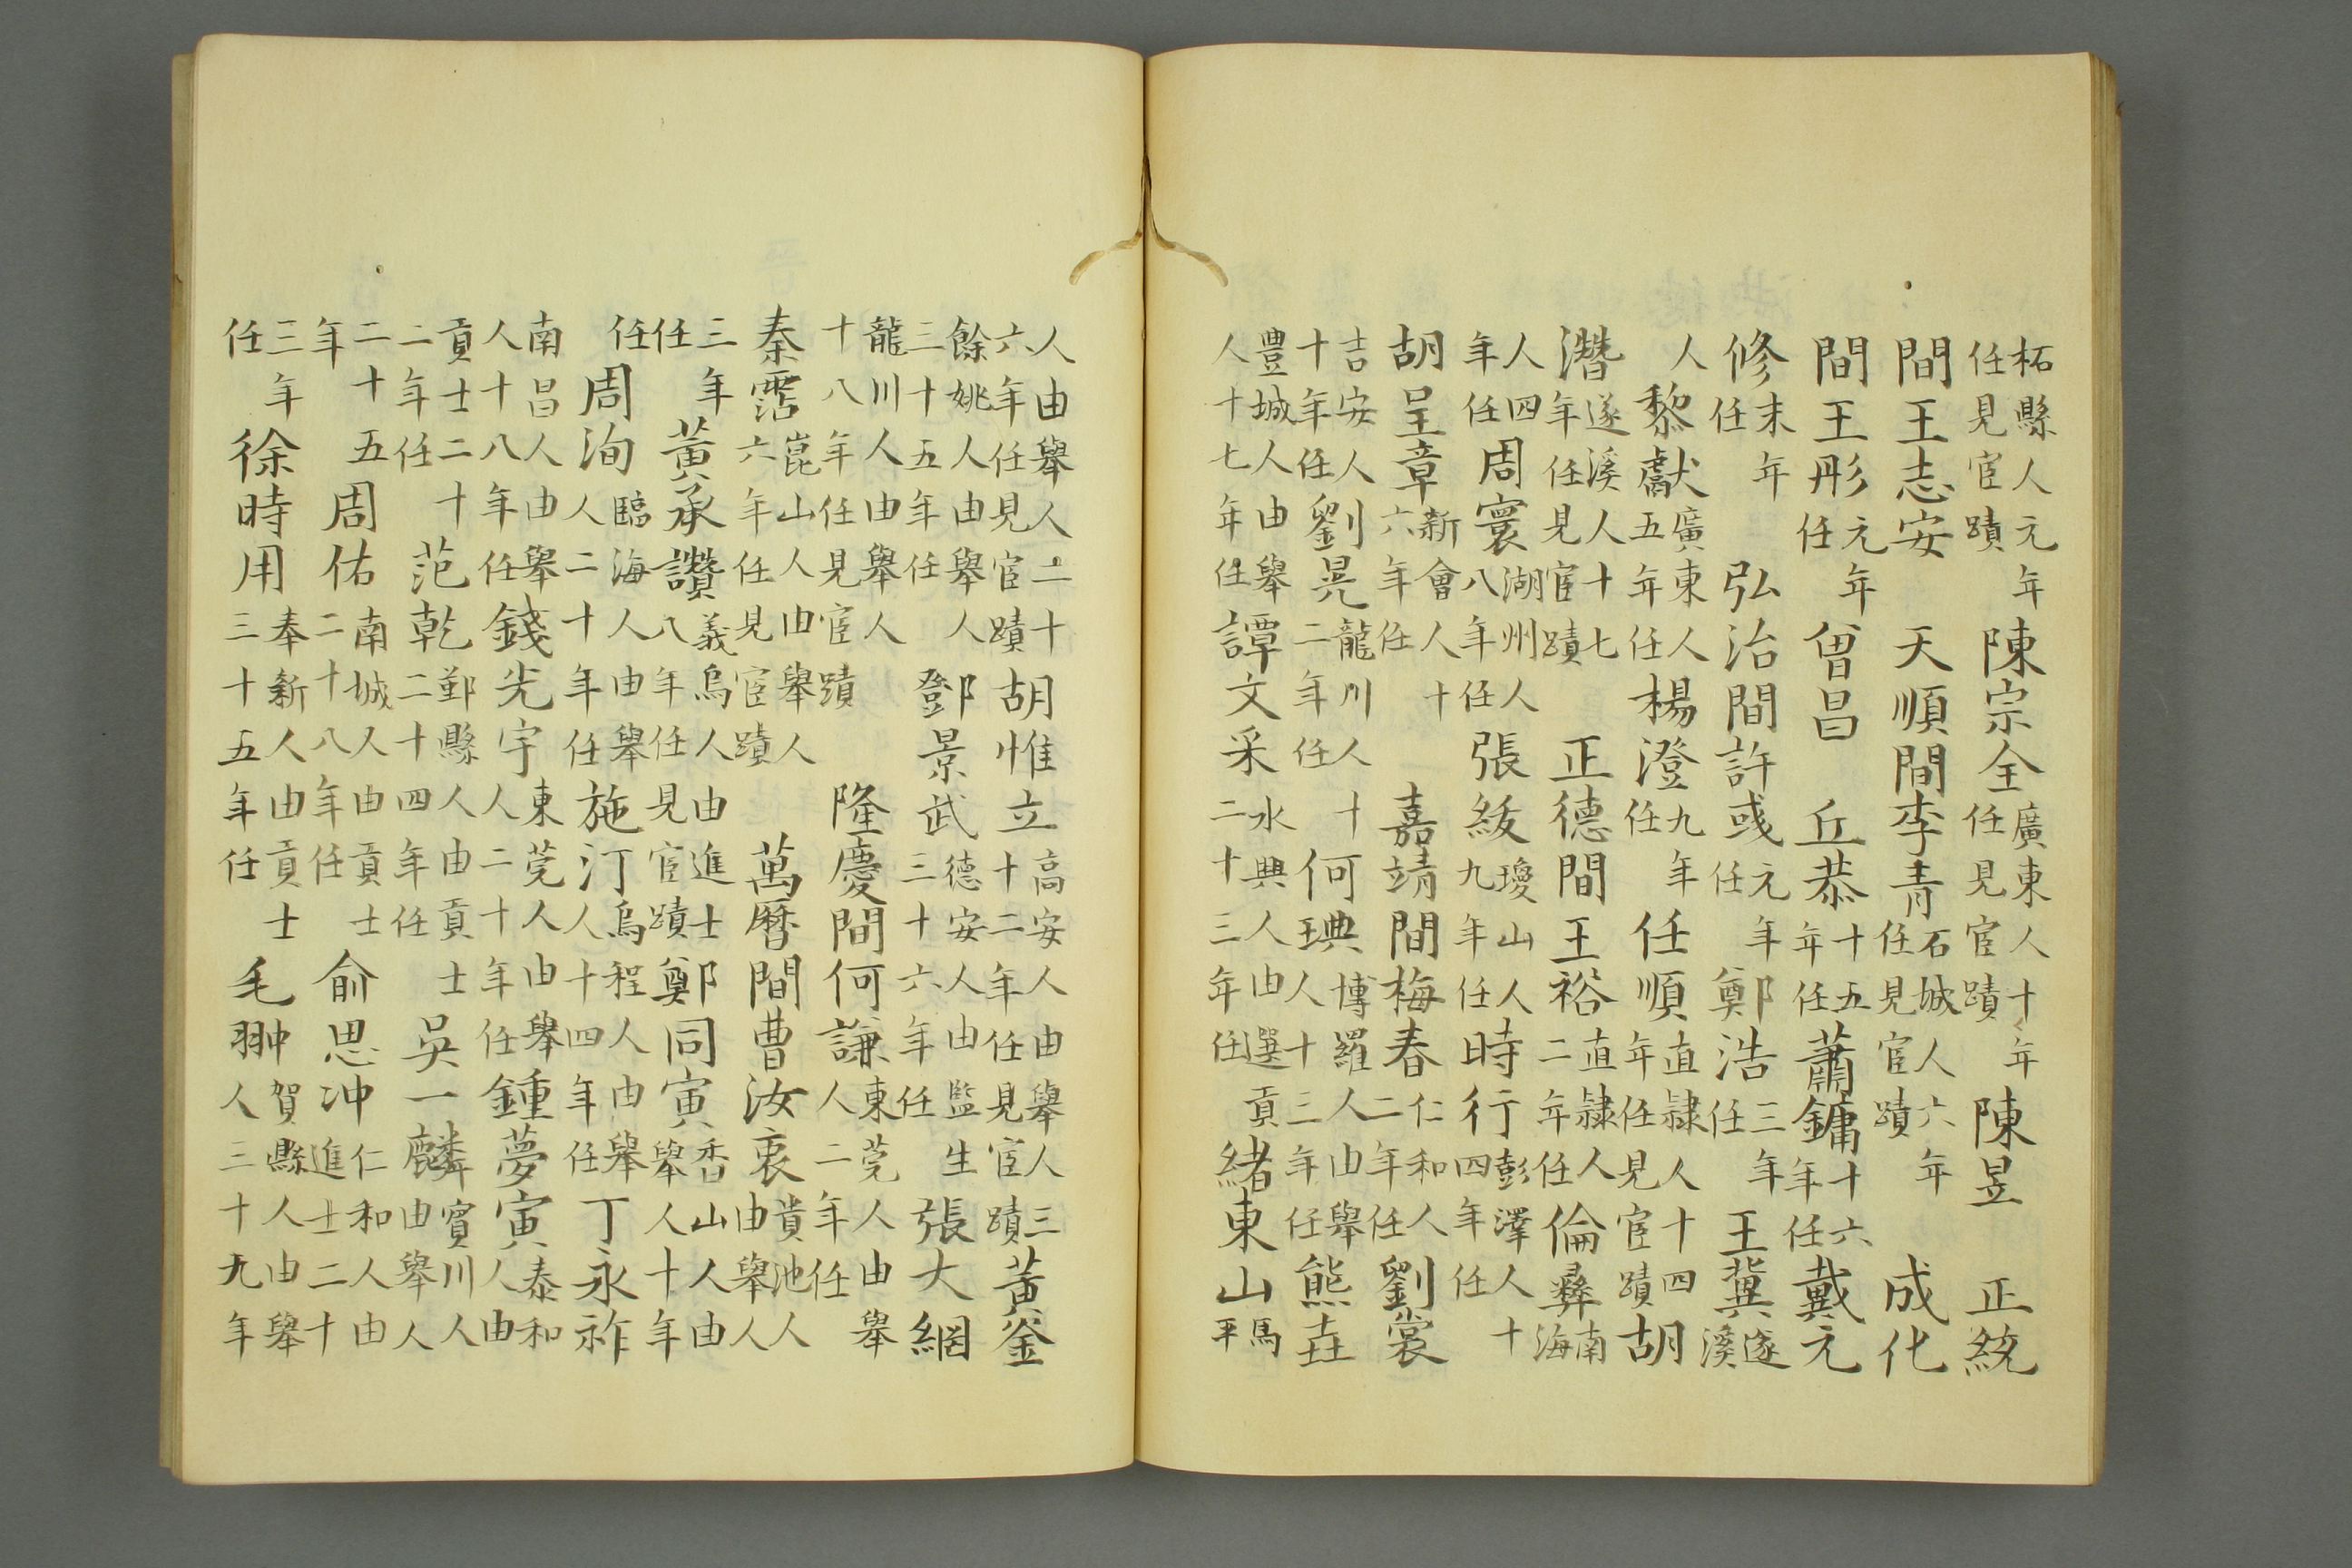 柘縣人元年任見宦蹟陳宗全廣東人十〻年任見宦蹟陳昱 正統
間王志安 天順間李青石城人六年任見宦蹟 成化
間王彤元年任曾昌 丘恭十五年任蕭鏞十六年任戴元
修末年任 弘治間許彧元年任鄭浩三年任王冀遂溪
人黎獻廣東人五年任楊澄九年任任順直隷人十四年任見宦蹟胡
濳遂溪人十七年任見宦蹟 正德間王裕直隷人二年任倫彞南海
人四年任周寰湖州人八年任張綬瓊山人九年任時行彭澤人十四年任
胡呈章新會人十六年任 嘉靖間梅春仁和人二年任劉裳
吉安人十年任劉晃龍川人十二年任何琠博羅人由舉人十三年任熊垚
豐城人由舉人十七年任譚文采水興人由選貢二十三年任緒東山馬平
人由舉人二十六年任見宦蹟胡惟立高安人由舉人三十二年任見宦蹟黃釜
餘姚人由舉人三十五年任鄧景武德安人由監生三十六年任張大綱
龍川人由舉人十八年任見宦蹟 隆慶間何謙東莞人由舉人二年任
秦霑崑山人由舉人六年任見宦蹟 萬曆間曹汝衷貴池人由舉人
三年任黃承讚義烏人由進士八年任見宦蹟鄭同寅香山人由舉人十年
任周洵臨海人由舉人二十年任施汀烏程人由舉人十四年任丁永祚
南昌人由舉人十八年任錢光宇東莞人由舉人二十年任鍾夢寅泰和人由
貢士二十二年任范乾鄞縣人由貢士二十四年任吳一麟賓川人由舉人
二十五年周佑南城人由貢士二十八年任俞思冲仁和人由進士二十
三年任徐時用奉新人由貢士三十五年任毛翀賀縣人由舉人三十九年